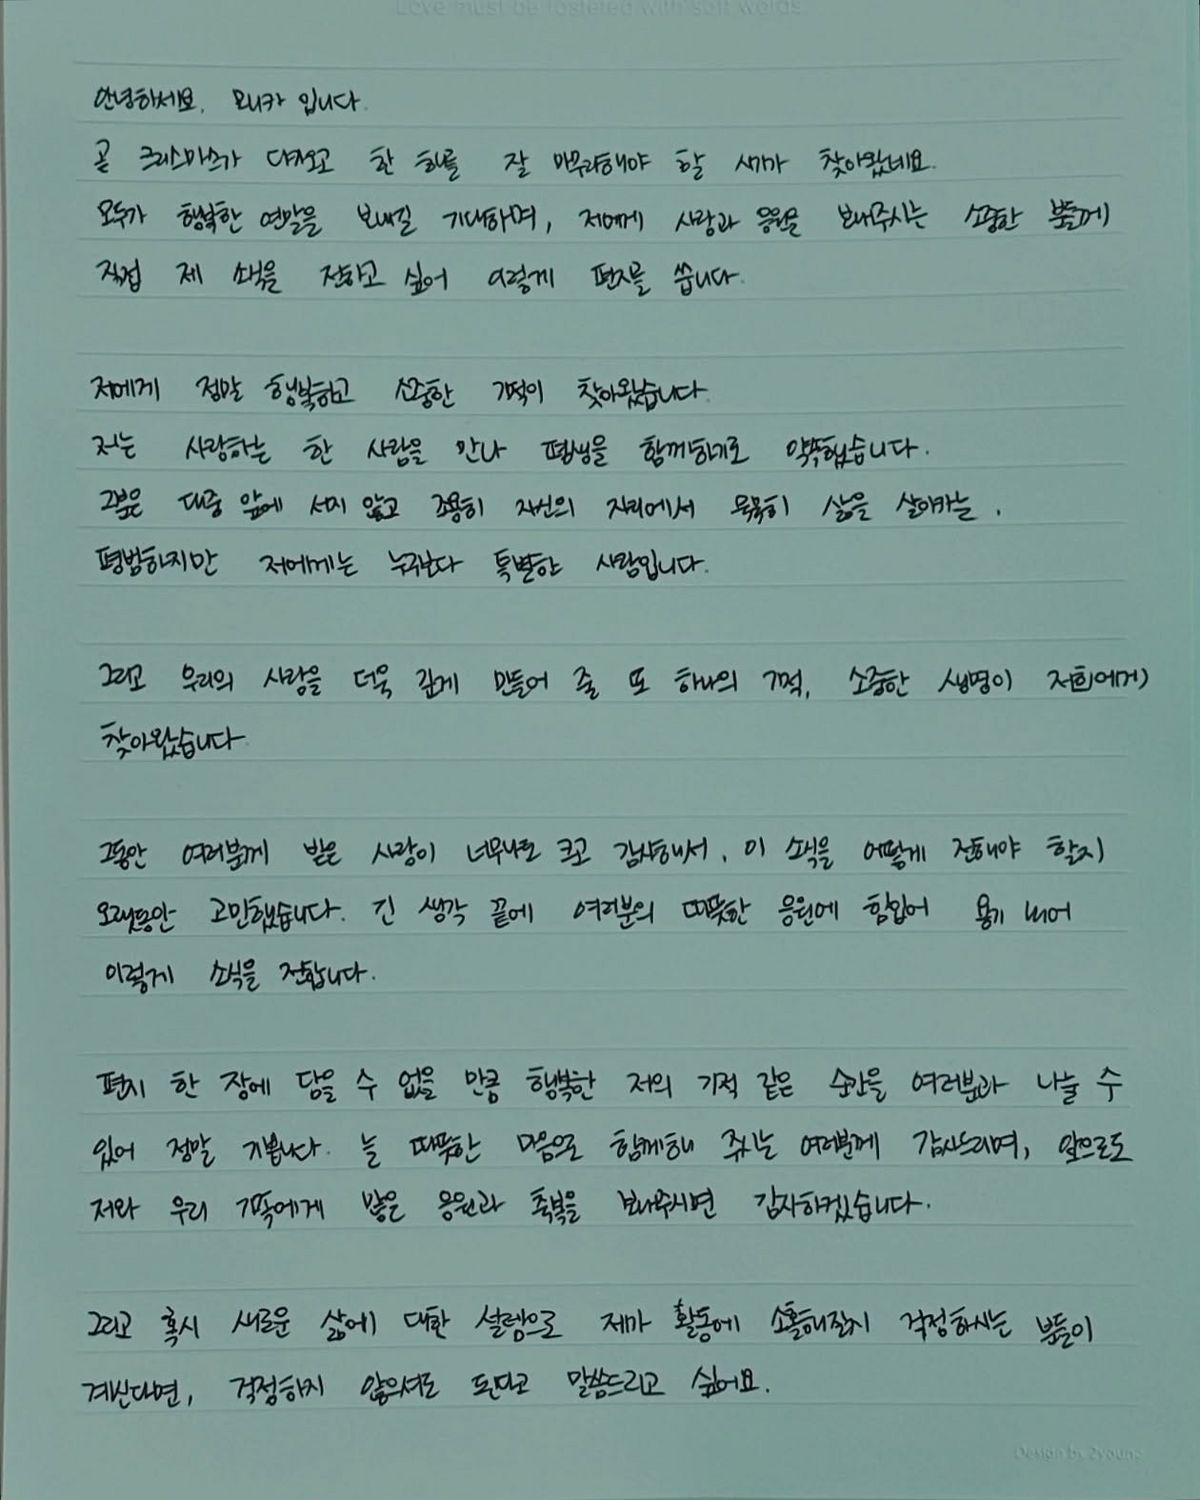 Love must be fostered with soft words.
안녕하세요. 모니카 입니다.
곧 크리스마스가 다가오고 한 해를 잘 마무리해야 할 시기가 찾아왔네요.
모두가 행복한 연말을 보내길 기대하며, 저에게 사랑과 응원을 보내주시는 소중한 분들께
직접 제 소식을 전하고 싶어 이렇게 편지를 씁니다.
저에게 정말 행복하고 소중한 기적이 찾아왔습니다.
저는 사랑하는 한 사람을 만나 평생을 함께하기로 약속했습니다.
그분은 대중 앞에 서지 않고 조용히 자신의 자리에서 묵묵히 삶을 살아가는,
평범하지만 저에게는 누구보다 특별한 사람입니다.
그리고 우리의 사랑을 더욱 깊게 만들어 줄 또 하나의 기적, 소중한 생명이 저희에게
찾아왔습니다.
그동안 여러분께 받은 사랑이 너무나도 크고 감사해서, 이 소식을 어떻게 전해야 할지
오랫동안 고민했습니다. 긴 생각 끝에 여러분의 따뜻한 응원에 힘입어 용기 내어
이렇게 소식을 전합니다.
편지 한 장에 담을 수 없을 만큼 행복한 저의 기적 같은 순간을 여러분과 나눌 수
있어 정말 기쁩니다. 늘 따뜻한 마음으로 함께해 주시는 여러분께 감사드리며, 앞으로도
저와 우리 가족에게 많은 응원과 축복을 보내주시면 감사하겠습니다.
그리고 혹시 새로운 삶에 대한 설렘으로 제가 활동에 소홀해질지 걱정하시는 분들이
계신다면, 걱정하지 않으셔도 된다고 말씀드리고 싶어요.
Design by 2young